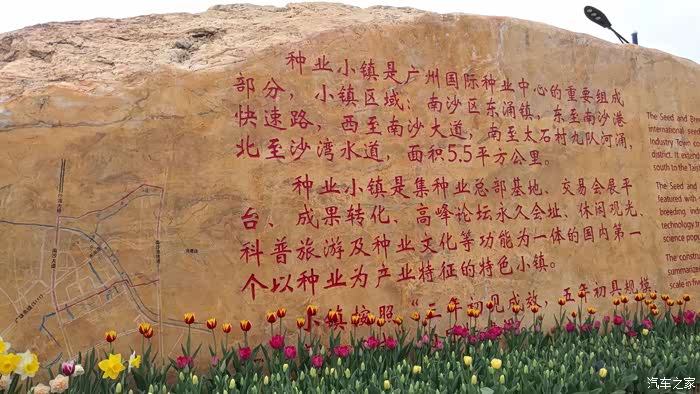 种业小镇是广州国际种业中心的重要组成
部分，小镇区域：南沙区东涌镇，东至南沙港
快速路，西至南沙大道，南至太石村九队河涌，
北至沙湾水道，面积5.5平方公里。
种业小镇是集种业总部基地、交易会展平
台、成果转化、高峰论坛永久会址、休闲观光、
科普旅游及种业文化等功能为一体的国内第一
个以种业为产业特征的特色小镇。
小镇按照“二年初见成效，五年初具规模
The Seed and Bree
international see
Industry Town co
district. It exten
south to the Taish
The Seed and
featured with
breeding
technology tr
science po
The constru
summariz
scale in five
汽车之家